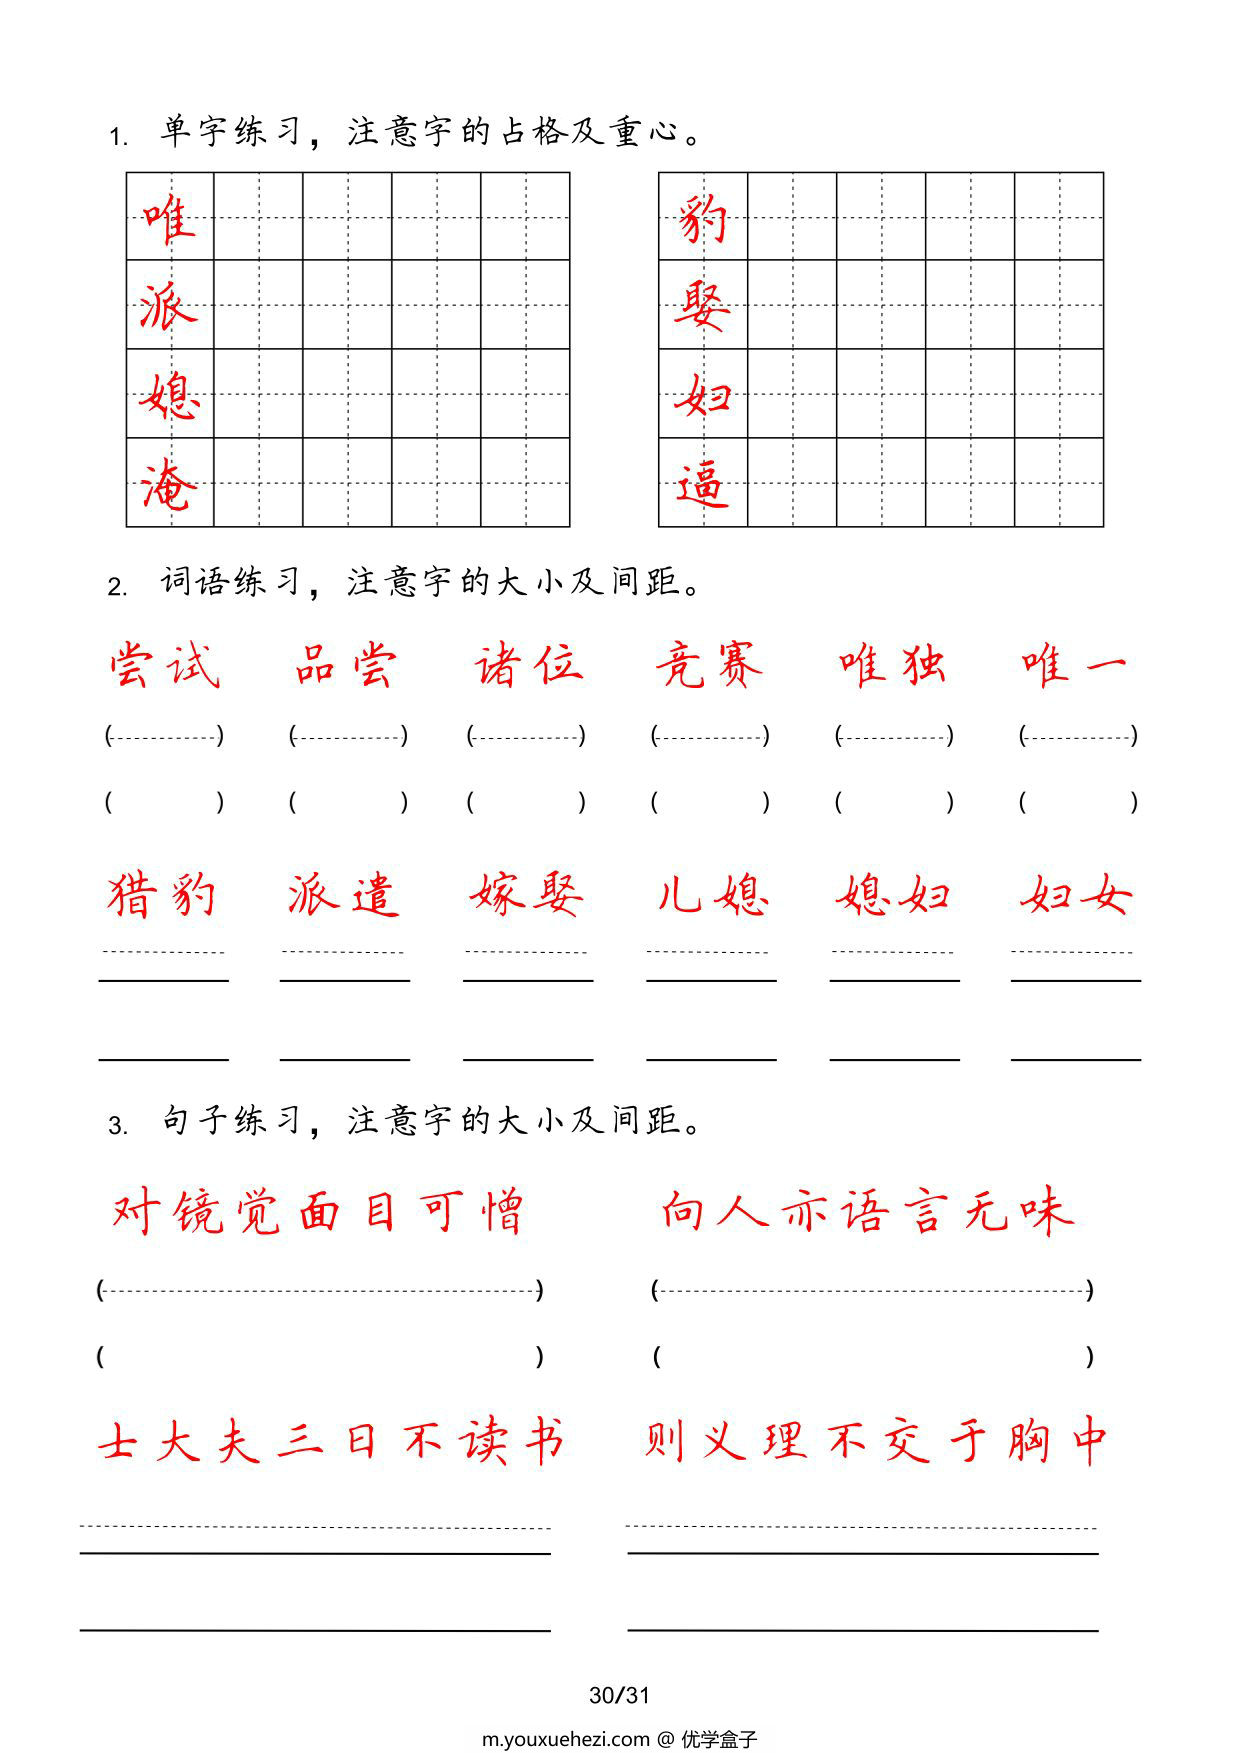 1. 单字练习，注意字的占格及重心。
唯 豹
派 娶
媳 妇
淹 逼
2. 词语练习，注意字的大小及间距。
尝试 品尝 诸位 竞赛 唯独 唯一
( ) ( ) ( ) ( ) ( ) ( )
( ) ( ) ( ) ( ) ( ) ( )
猎豹 派遣 嫁娶 儿媳 媳妇 妇女
3. 句子练习，注意字的大小及间距。
对镜觉面目可憎 向人亦语言无味
( ) ( )
( ) ( )
士大夫三日不读书 则义理不交于胸中
30/31
m.youxuehezi.com @ 优学盒子